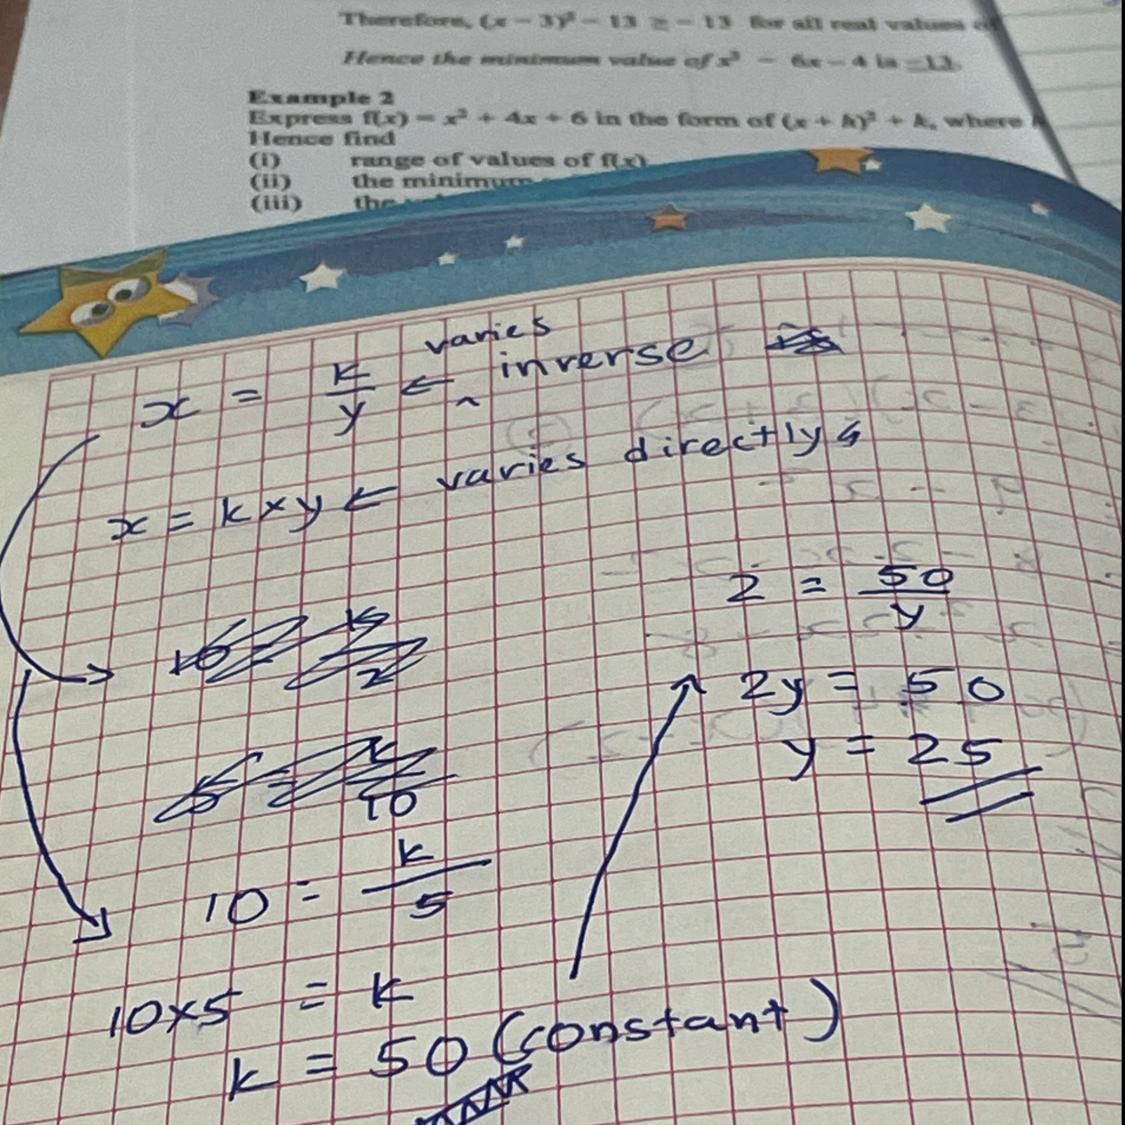 Therefore, (x − 3)² − 13 ≥ − 13 for all real values
Hence the minimum value of x² − 6x − 4 is −13.
Example 2
Express f(x) = x² + 4x + 6 in the form of (x + h)² + k, where
Hence find
(i) range of values of f(x)
(ii) the minimum
(iii) the
varies
x = k/y ← inverse
x = k × y ← varies directly
10 = k/5
10×5 = k
k = 50 (constant)
2 = 50/y
2y = 50
y = 25